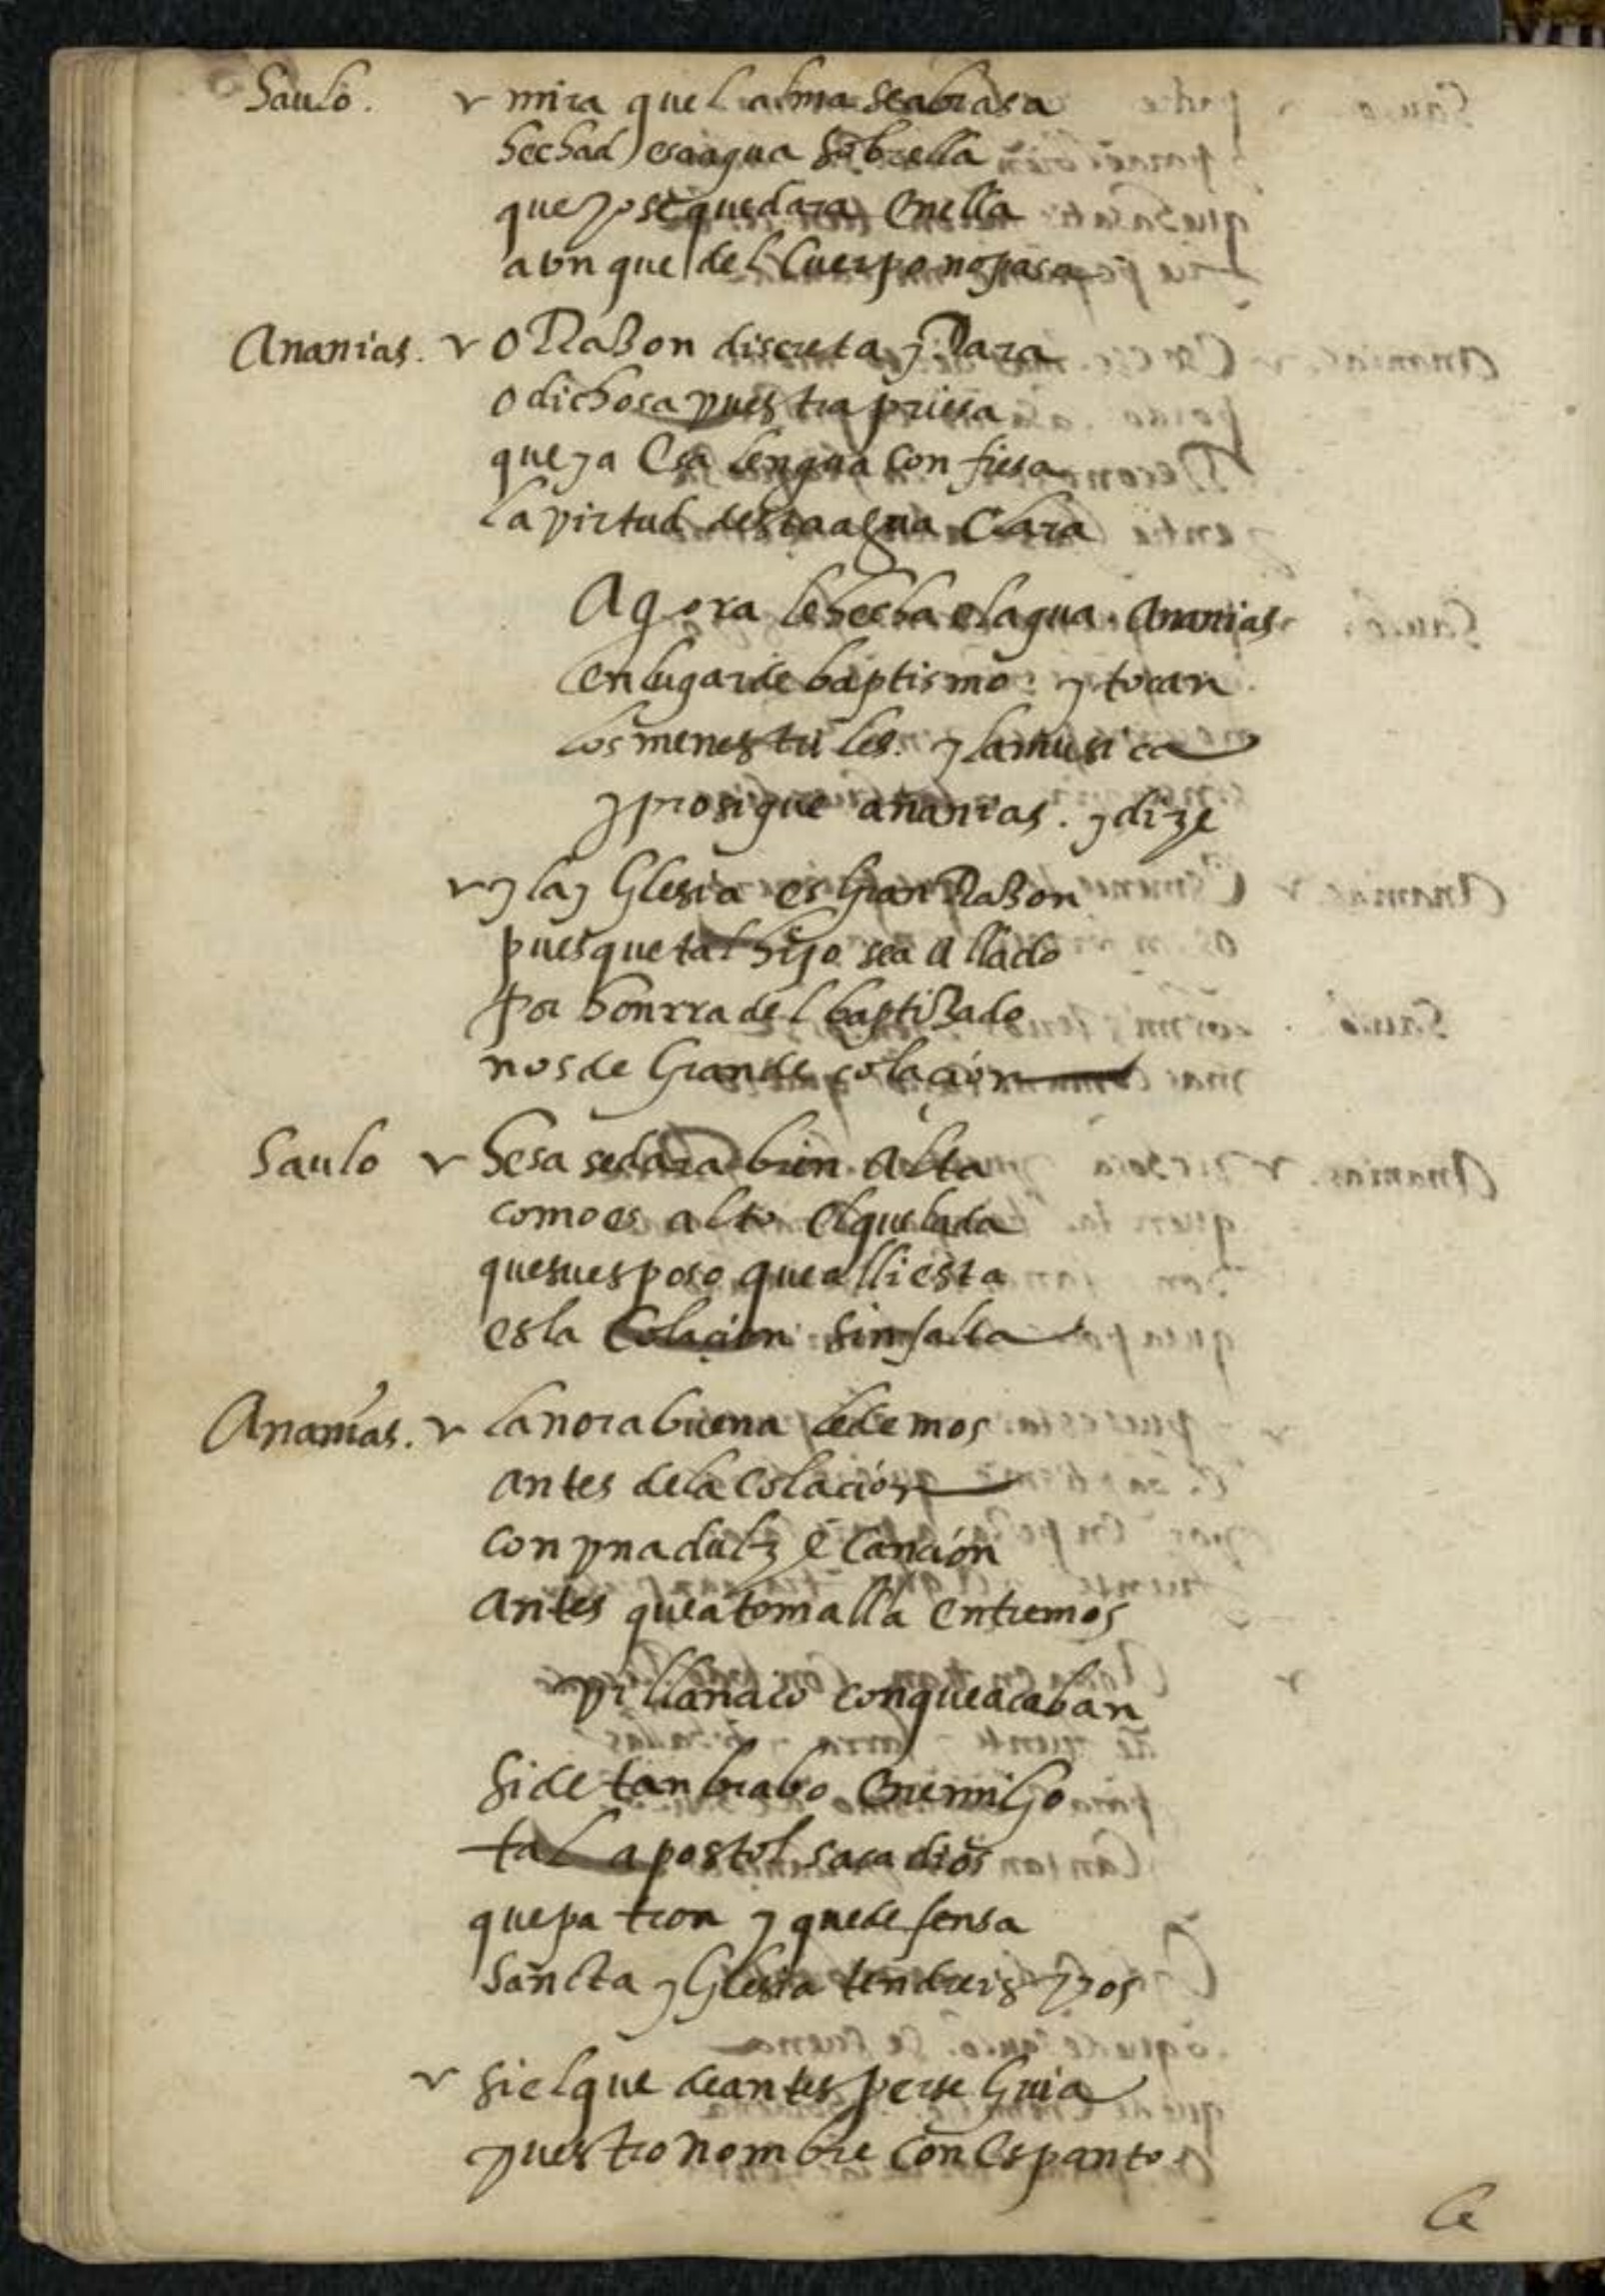 Saulo. v mira quel alma seabrasa
hechad esaagua sobrella
que yo se quedara enella
avn que del cuerpo nopasa
Ananias. v o Razon discreta y Rara
o dichosa vuestra priesa
que ya esa lengua confiesa
la virtud destaagua clara
Agora le hecha elagua. Ananias.
en lugar de baptismo. y tocan
los menestriles. y lamusica
y prosigue ananias. y dize
v y lay glesia es gran Razon
pues que tal hijo sea allado
por honrra del baptizado
nos de grande colacion
Saulo v hesa sedara bien alta
como es alto elquelada
quesuesposo que alli esta
es la colacion sinfalta
Ananias. v lanorabuena ledemos
antes dela colacion
con vna dulze cancion
antes queatomalla entremos
villancico conqueacaban
si de tan brabo enemigo
tal apostol saca dios
que patron y quedefensa
sancta yglesia tendreis vos
v si elque deantes perseguia
vuestro nombre con espanto